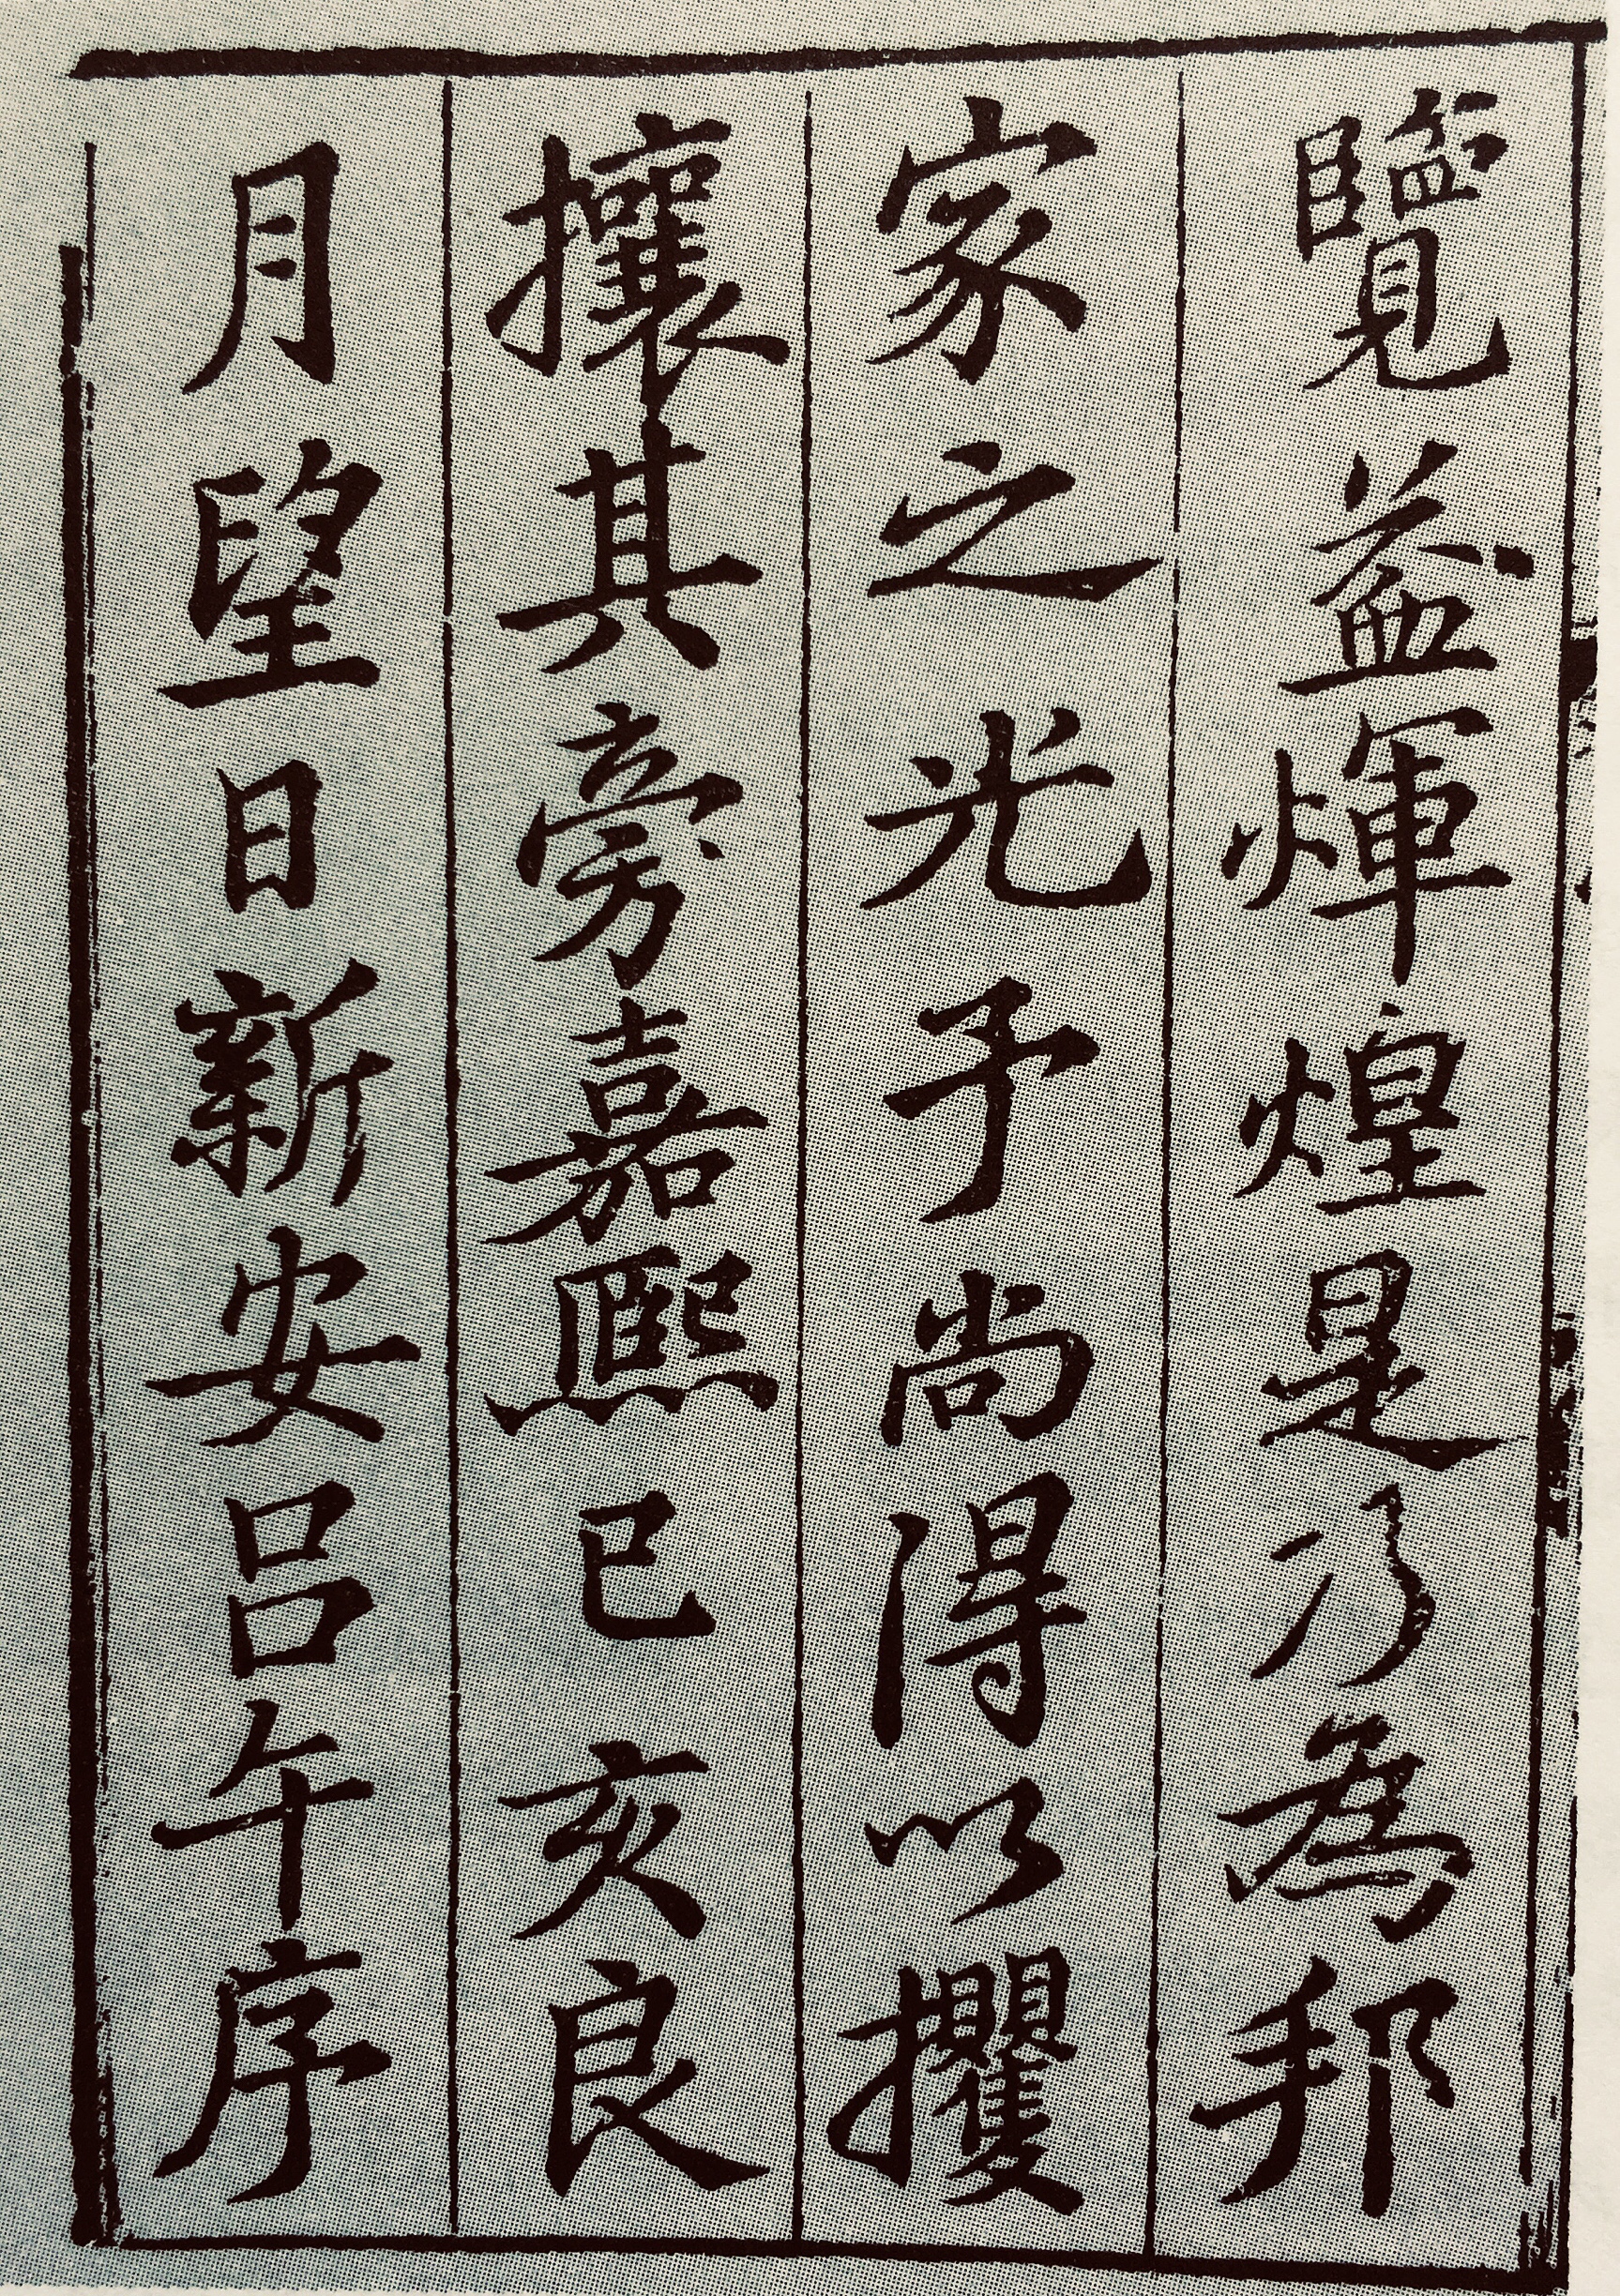 覽益煇煌是乃為邦
家之光予尚得以攫
攘其旁嘉熙己亥良
月望日新安呂午序